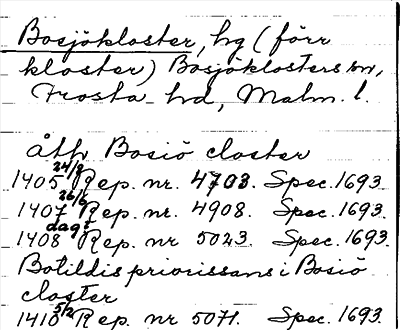 Bosjökloster, hg (förr
kloster) Bosjöklosters sn,
Frosta hd, Malm. l.
åth Bosiö closter
1405 24/8 Rep. nr. 4703. Spec. 1693.
1407 26/6 Rep. nr. 4908. Spec. 1693.
1408 dag? Rep. nr. 5023. Spec. 1693.
Botildis priorissans i Bosiö
closter
1410 5/2 Rep. nr. 5071. Spec. 1693.